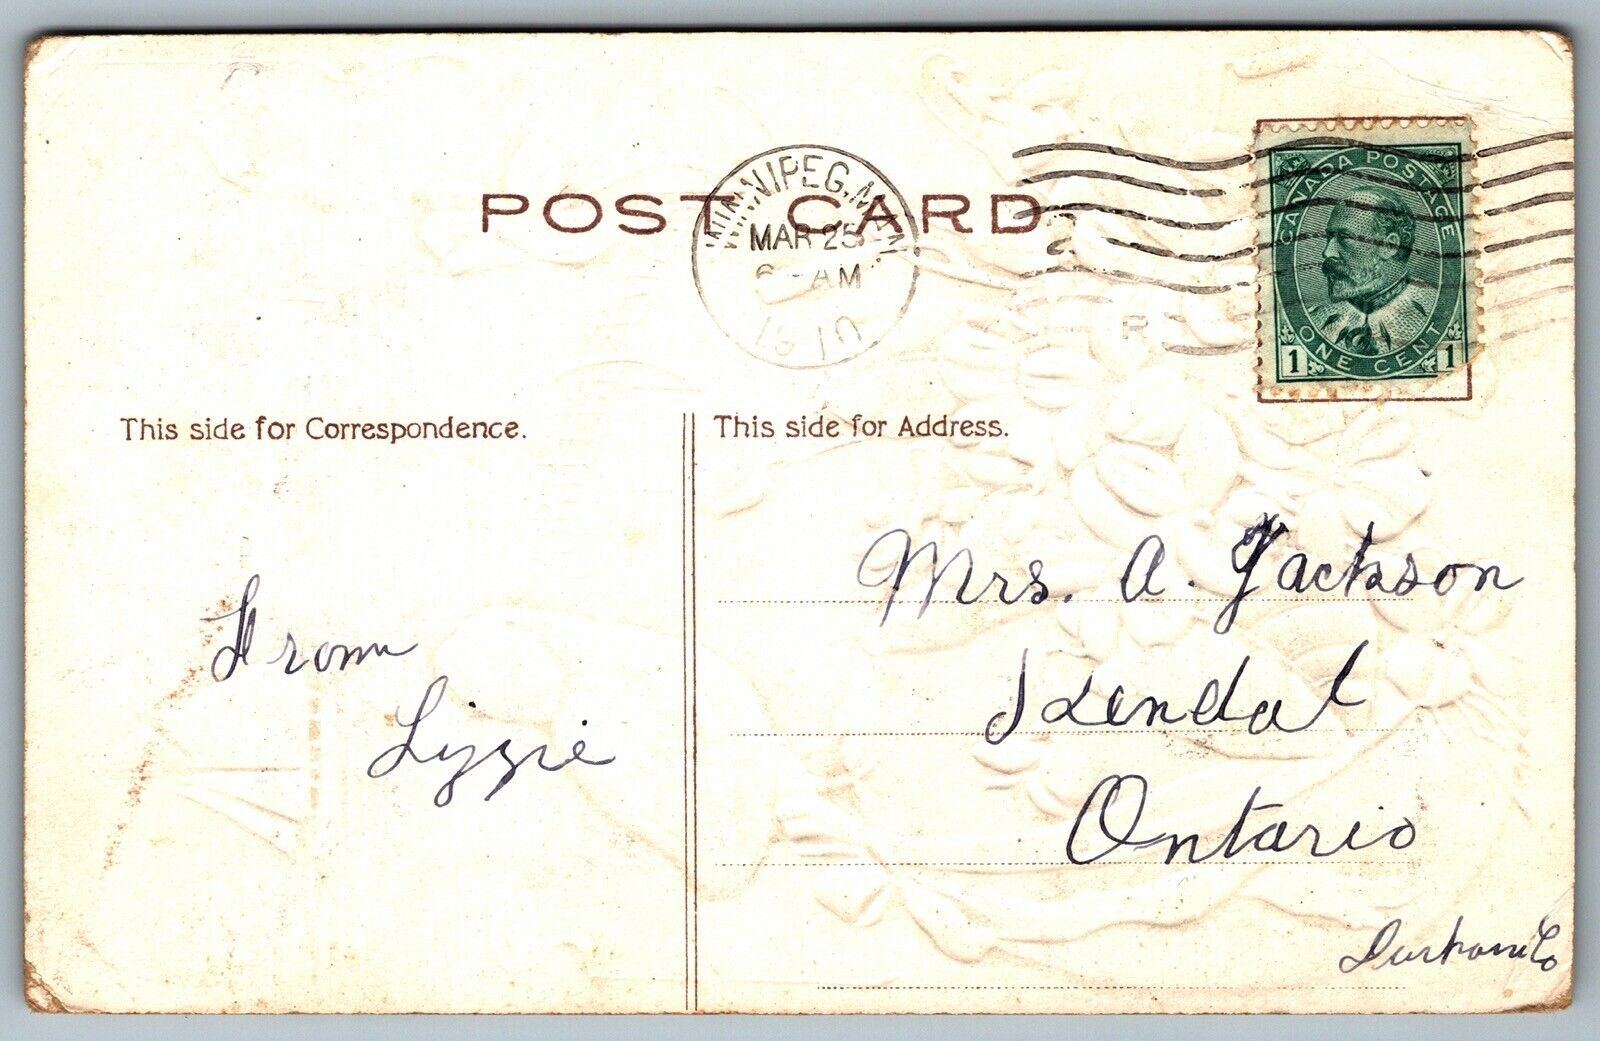 POST CARD
WINNIPEG, MAN.
MAR 25
6 - AM
1910
CANADA POSTAGE
ONE CENT
1 1
This side for Correspondence.
This side for Address.
From
Lizzie
Mrs. A. Jackson
Kendal
Ontario
Durham Co